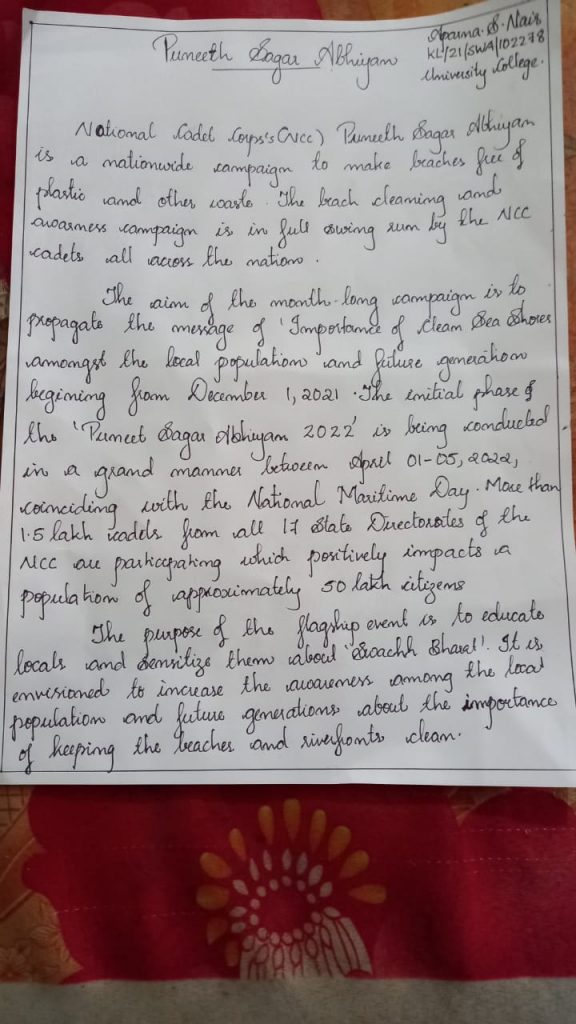 Aparna. S. Nair
KL/21/SWA/102278
University College.
Puneeth Sagar Abhiyan
National Cadet Corps's (NCC) Puneeth Sagar Abhiyan
is a nationwide campaign to make beaches free of
plastic and other waste. The beach cleaning and
awarness campaign is in full swing run by the NCC
cadets all across the nation.
The aim of the month-long campaign is to
propagate the message of 'Importance of Clean Sea Shores
amongst the local population and future generation
begining from December 1, 2021. The initial phase of
the 'Puneet Sagar Abhiyan 2022' is being conducted
in a grand manner between April 01-05, 2022,
coinciding with the National Maritime Day. More than
1.5 lakh cadets from all 17 State Directorates of the
NCC are participating which positively impacts a
population of approximately 50 lakh citizens
The purpose of the flagship event is to educate
locals and sensitize them about 'Swachh Bharat'. It is
envisioned to increase the awareness among the local
population and future generations about the importance
of keeping the beaches and riverfronts clean.